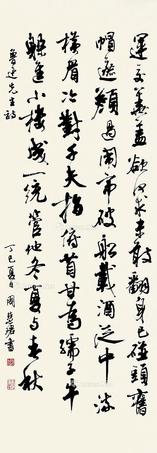 運交華蓋欲何求未敢翻身已碰頭舊
帽遮顏過鬧市破船載酒泛中流
橫眉冷對千夫指俯首甘為孺子牛
躲進小樓成一統管他冬夏與春秋
魯迅先生詩
丁巳夏日周慧珺書